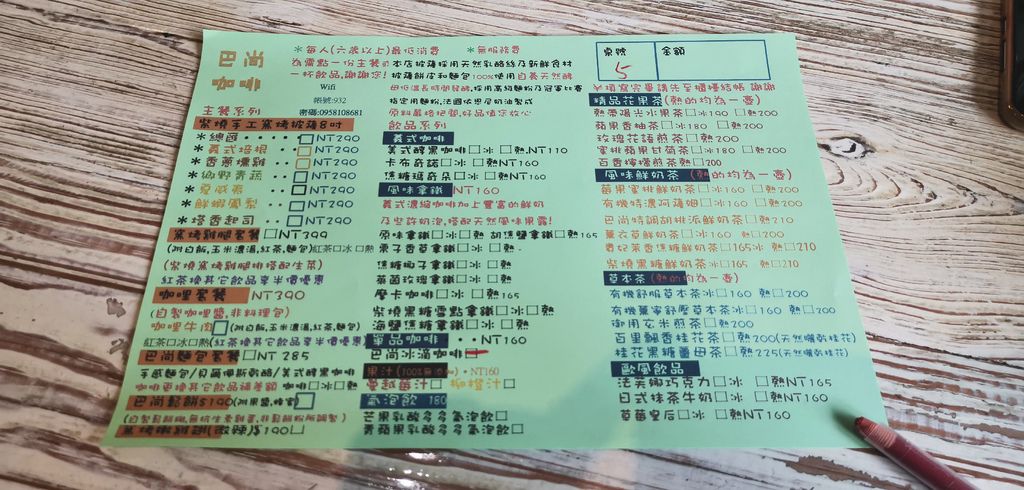 巴尚
＊每人(六歲以上)最低消費 ＊無服務費
為需點一份主餐or
一杯飲品,謝謝您!
Wifi
帳號:932
密碼:0958108681
本店披薩採用天然乳酪絲及新鮮食材
披薩餅皮和麵包100%使用自養天然酵
母低溫長時間發酵,採用高級麵粉及冠軍比賽
指定用麵粉,法國依思尼奶油製成
原料嚴格把關,好品値您放心
桌號 金額
5
填寫完畢請先至櫃檯結帳 謝謝
主餐系列
柴燒手工窯烤披薩8吋
＊總匯‧‧‧‧□NT290
＊義式培根‧□NT290
＊香蔥燻雞‧□NT290
＊鄉野青蔬‧□NT290
＊夏威夷 □NT290
＊鮮蝦鳳梨‧□NT290
＊塔香起司‧□NT290
窯烤雞腿套餐□NT399
(附白飯,玉米濃湯,紅茶,麵包)紅茶□冰□熱
(柴燒窯烤雞腿排搭配生菜)
紅茶換其它飲品享半價優惠
咖哩套餐 NT390
(自製咖哩醬,非料理包)
咖哩牛肉□(附白飯,玉米濃湯,紅茶,麵包)
紅茶□冰□熱(紅茶換其它飲品享半價優惠)
巴尚麵包套餐□NT 285
手感麵包/貝爾佛斯乳酪/美式醇黑咖啡
咖啡更換其它飲品補差額 咖啡□冰□熱
巴尚鬆餅$190(附果醬,蜂蜜)□
窯烤嫩雞翅(微辣)$190□
飲品系列
義式咖啡
美式醇黑咖啡□冰 □熱,NT110
卡布奇諾□冰 □熱NT160
焦糖瑪奇朵□冰 □熱NT160
風味拿鐵 NT160
義式濃縮咖啡加上豐富的鮮奶
及些許奶泡,搭配天然風味果露!
原味拿鐵□冰 □熱 胡焦鹽拿鐵□熱165
栗子香草拿鐵□冰 □熱
焦糖椰子拿鐵□冰 □熱
萊茵玫瑰拿鐵□冰 □熱
摩卡咖啡□冰 □熱165
柴燒黑糖雲點拿鐵□冰□熱
海鹽焦糖拿鐵□冰 □熱
單品咖啡 ‧‧NT160
巴尚冰滴咖啡□
果汁(100%無添加)‧NT160
蔓越莓汁□ 柳橙汁□
氣泡飲 180
芒果乳酸多多氣泡飲□
青蘋果乳酸多多氣泡飲□
精品花果茶(熱的均為一壺)
熱帶陽光水果茶□冰190 □熱200
蘋果香柚茶□冰180 □熱200
玫瑰花語煎茶□熱200
蜜桃蘋果甘菊茶□冰180 □熱200
百香檸檬煎茶□熱200
風味鮮奶茶(熱的均為一壺)
莓果蜜桃鮮奶茶□冰160 □熱200
有機特濃阿薩姆□冰160 □熱200
巴尚特調胡桃派鮮奶茶□熱210
薰衣草鮮奶茶□冰160 □熱200
貴妃茶香焦糖鮮奶茶□165冰 □熱210
柴燒黑糖鮮奶茶□冰165 □熱210
草本茶(熱的均為一壺)
有機舒眠草本茶冰□160 熱□200
有機薰寧舒壓草本茶□冰160 □熱200
御用玄米煎茶□熱200
百里飄香桂花茶□熱200(天然曬乾桂花)
桂花黑糖薑母茶□熱225(天然曬乾桂花)
歐風飲品
法芙娜巧克力□冰 □熱NT165
日式抹茶牛奶□冰 □熱NT160
草莓皇后□冰 □熱NT160